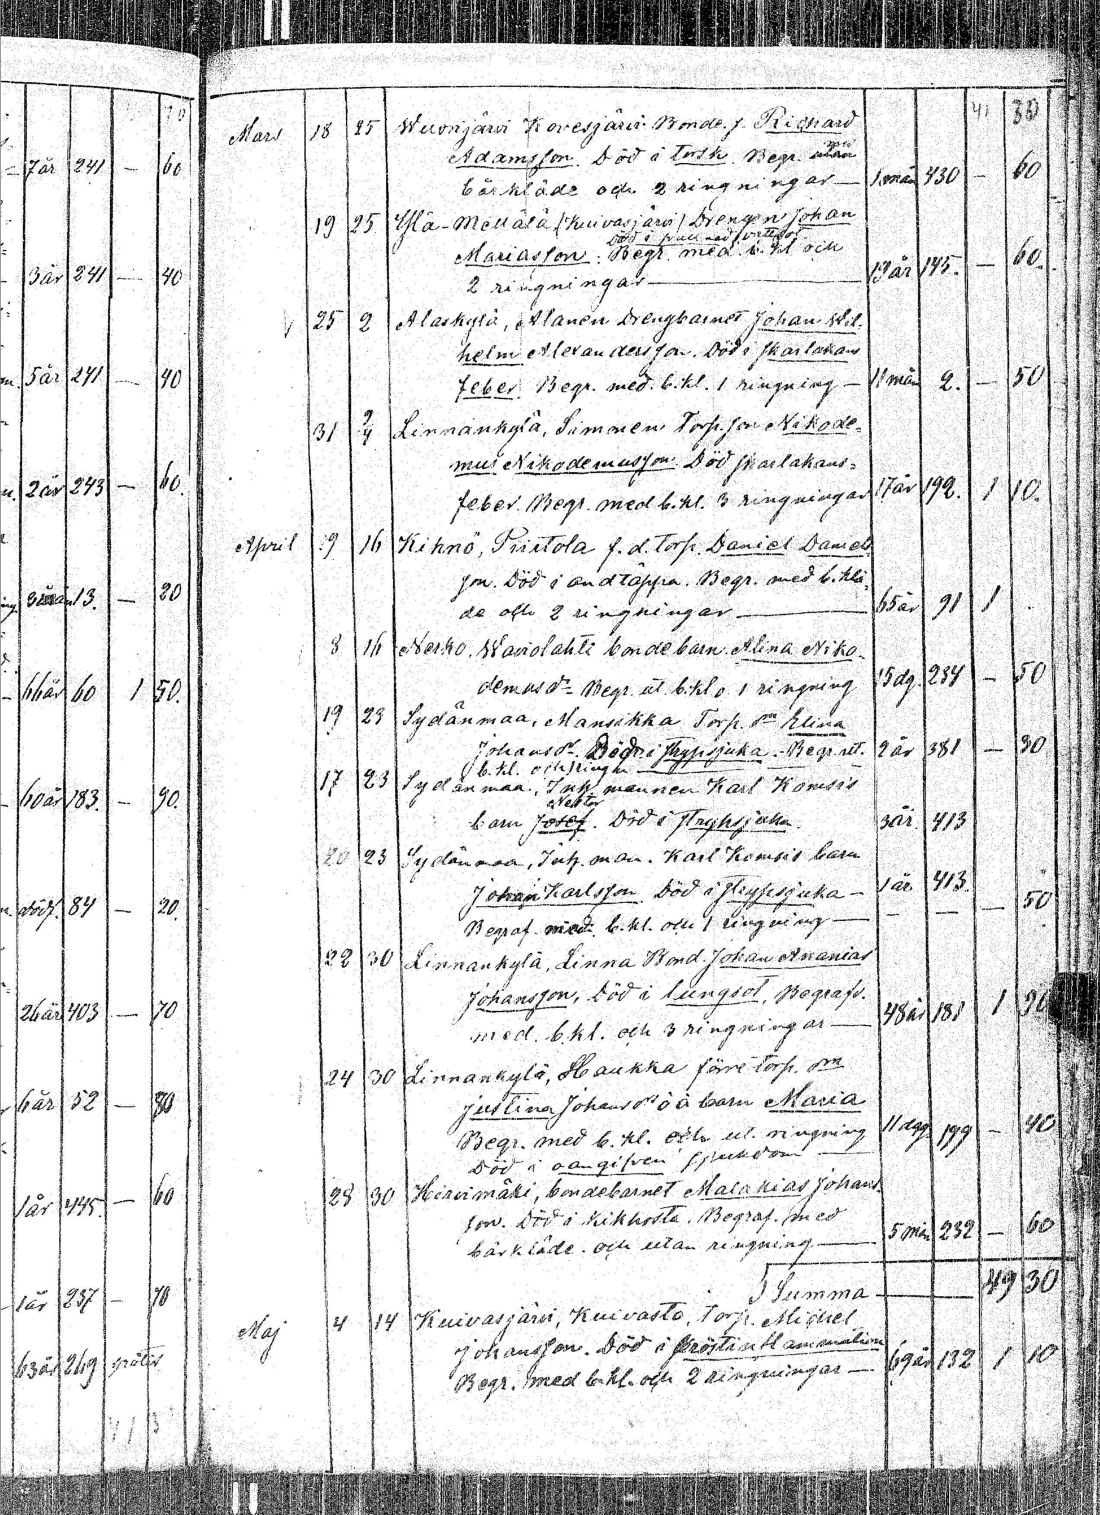 10
7 år 241 — 60
3 år 241 — 40
5 år 241 — 40
2 år 243 — 60.
13. — 20
66 år 60 1 50.
60 år 183. — 90.
dödf. 84 — 20.
26 år 403 — 70
6 år 52 — 80
1 år 445. — 60
1 år 237 — 70
63 år 269 gratis
41 30
Mars 18 25 Wuorijärvi Kovesjärvi Bonde. s. Richard
Adamsson. Död i torsk. Begr. med
bårkläde och 2 ringningar — 1 mån 430 — 60
19 25 Ylä-Mettälä (Kuivasjärvi) Drengen Johan
Mariasson. Begr. med b. kl och
2 ringningar — 19 år 145. — 60.
25 2 Alaskylä, Alanen Drengbarnet Johan Wil-
helm Alexandersson. Död i skarlakans
feber. Begr. med. b. kl. 1 ringning — 11 mån 2. — 50
31 2/4 Linnankylä, Simonen Torp. son Nikode=
mus Nikodemusson. Död skarlakans=
feber. Begr. med b. kl. 3 ringningar 17 år 192. 1 10.
April 9 16 Kihnö, Piirtola f. d. torp. Daniel Daniels
son. Död i andtäppa. Begr. med b. klä-
de och 2 ringningar — 65 år 91 1 .
8 16 Nerko. Waviolahti bondebarn Alina Niko-
demusdr Begr. ut. b. kl o. 1 ringning 15 dg. 234 — 50
19 23 Sydänmaa, Mansikka Torp. sm Elina
Johansdr. Död i strypsjuka. Begr. ut. 2 år 381 — 30
b. kl. och 1 ringn
17 23 Sydänmaa, Inh. mannen Karl Komsis
Nestor
barn Josef. Död i strypsjuka. 3 år. 413
20 23 Sydänmaa, Inh. man. Karl Komsis barn
Johan Karlsson. Död i strypsjuka — 1 år. 413.
Begraf. med. b. kl. och 1 ringning — — — — 50
22 30 Linnankylä, Linna Bond. Johan Ananias
Johansson, Död i lungsot, Begrafs.
med. b. kl. och 3 ringningar — 48 år 181 1 90
24 30 Linnankylä, Haukka förre torp. sm
Justina Johansdrs o ä barn Maria
Begr. med b. kl. och ut. ringning 11 dag. 199 — 40
Död i oangifven sjukdom —
28 30 Hirvimäki, bondebarnet Malakias Johans-
son. Död i kikhosta. Begraf. med
bårkläde. och utan ringning — 5 mån 232 — 60
Summa — 49 30
Maj 4 14 Kuivasjärvi, Kuivasto, Torp. Michel
Johansson. Död i Bröstinflammation
Begr. med b. kl. och 2 ringningar — 69 år 132 1 10